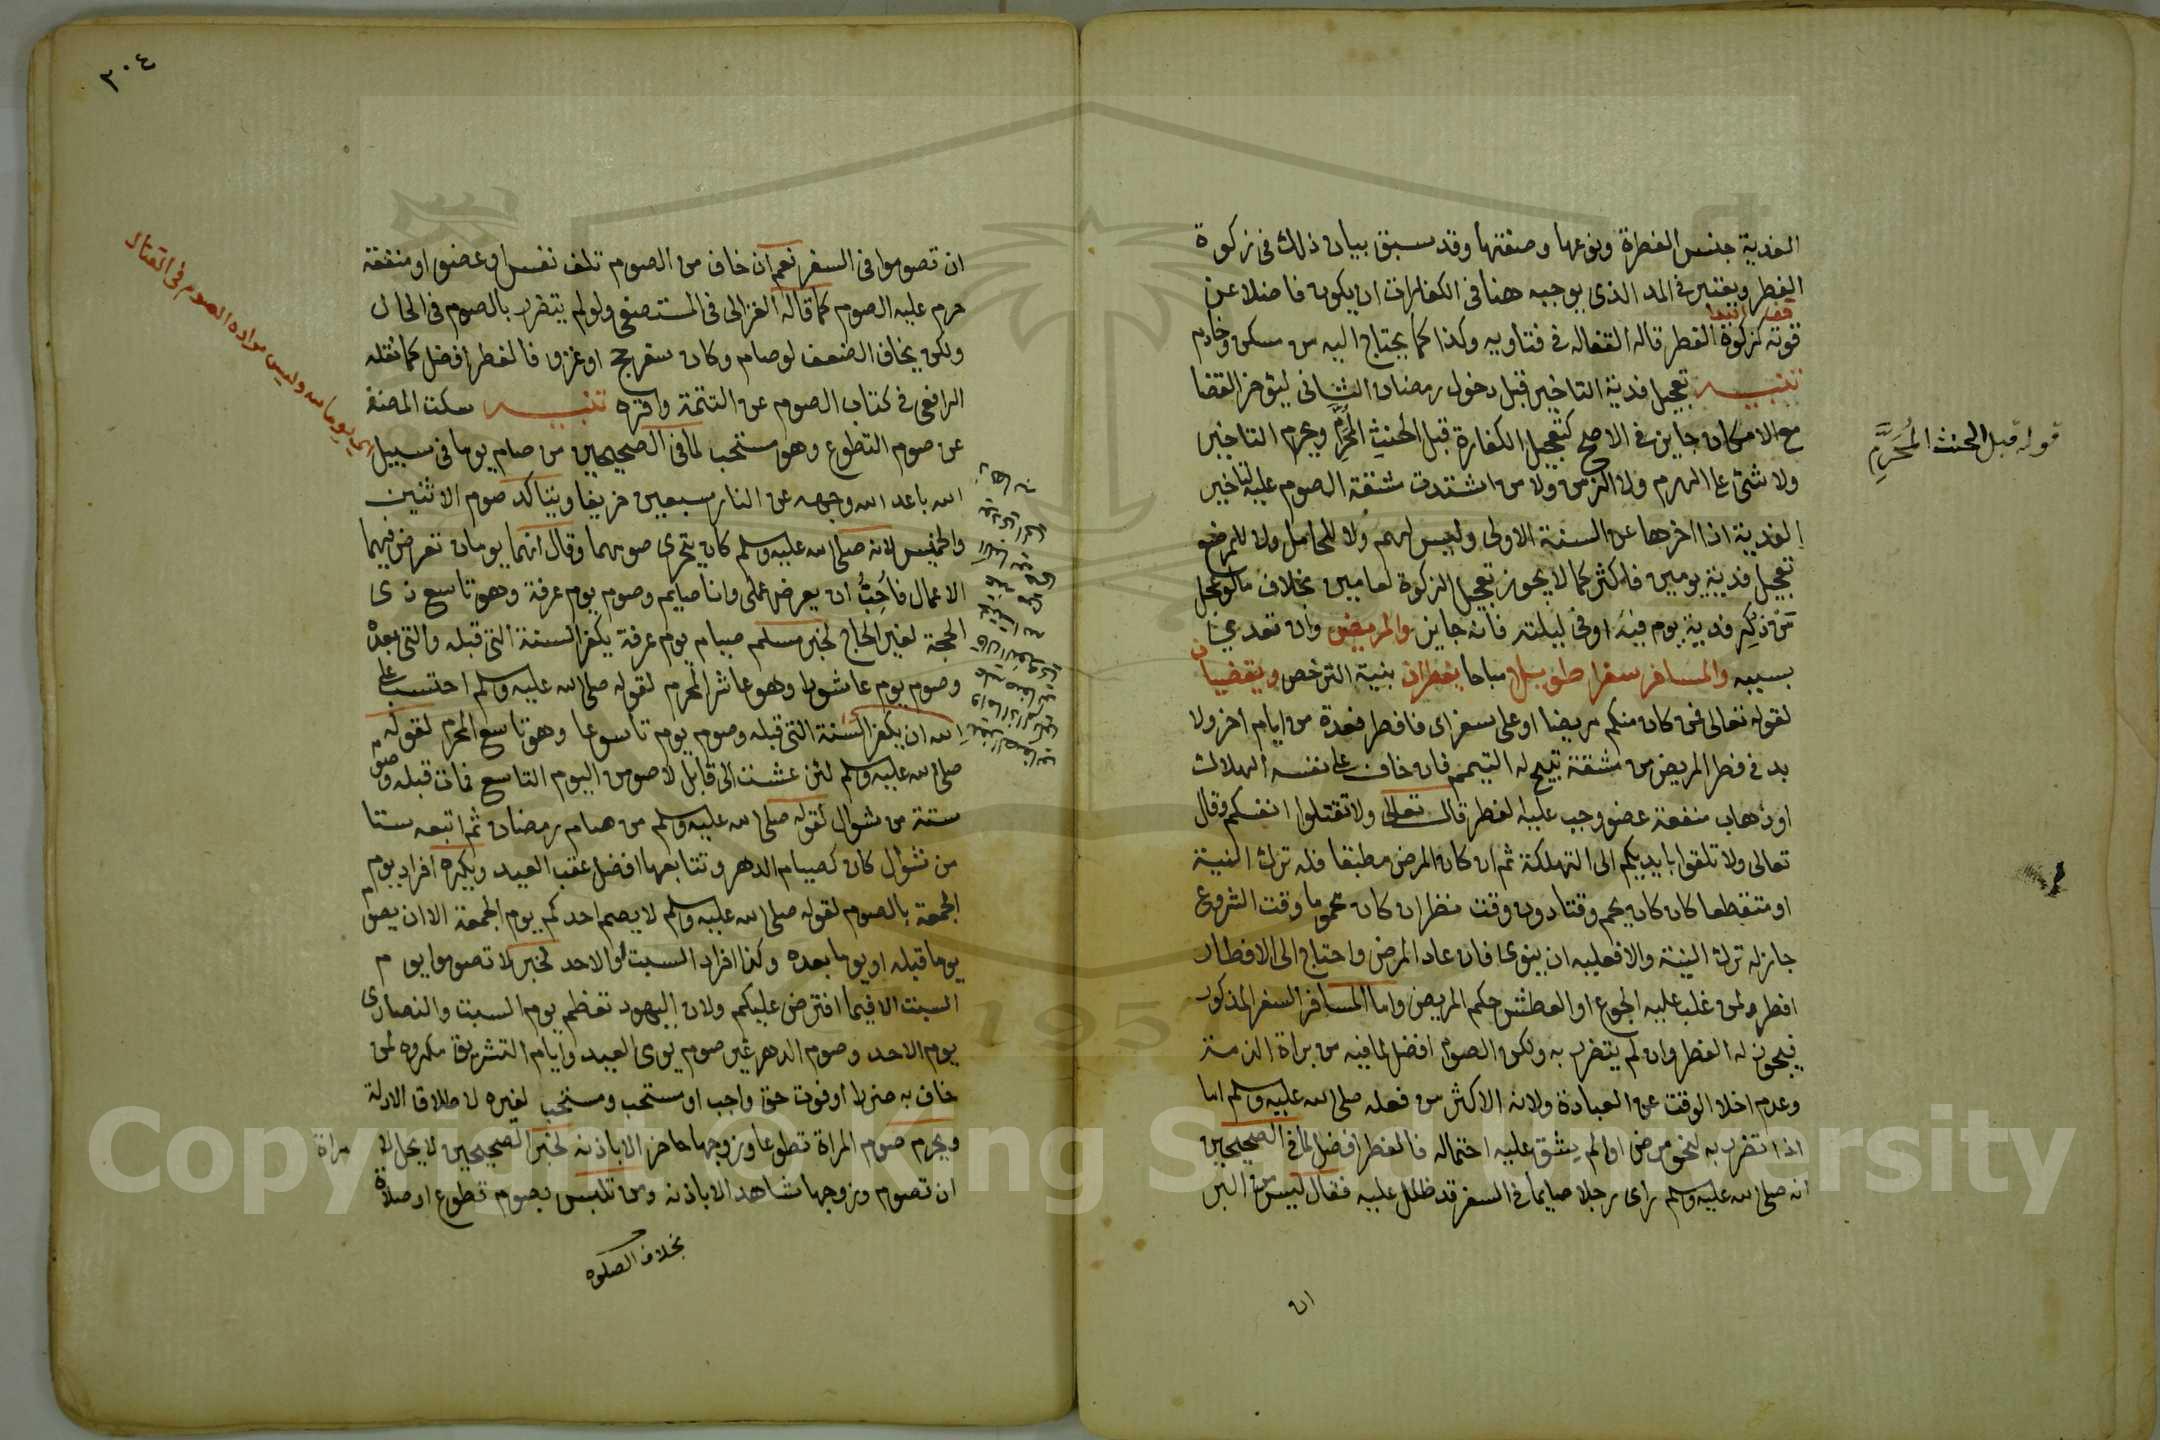 الفدية جنس الفطرة ونوعها وصفتها وقد سبق بيان ذلك في زكوة
الفطر ويعتبر في المد الذي يوجبه هنا في الكفارات ان يكون فاضلا عن
قوته كزكوة الفطر قاله القفال في فتاويه وكذا كما يحتاج اليه من مسكن وخادم
تنبيه تعجيل فدية التاخير قبل دخول رمضان الثاني ليؤخر القضا
مع الامكان جايز في الاصح كتعجيل الكفارة قبل الحنث المحرم ويحرم التاخير
ولا شئ على الهرم ولا الزمن ولا من اشتدت مشقة الصوم عليه لتاخير
الفدية اذا اخرها عن السنة الاولى وليس لهم ولا للحامل ولا للمرضع
تعجيل فدية يومين فاكثر كما لا يجوز تعجيل الزكوة لعامين بخلاف ما لو عجل
من ذكر فدية يوم فيه او في ليلته فانه جايز والمريض وان تعدى
بسببه والمسافر سفرا طويلا مباحا يفطران بنية الترخص ويقضيان
لقوله تعالى فمن كان منكم مريضا او على سفر اى فافطر فعدة من ايام اخر ولا
بد في فطر المريض من مشقة تبيح له التيمم فان خاف على نفسه الهلاك
او ذهاب منفعة عضو وجب عليه الفطر قال تعالى ولا تقتلوا انفسكم وقال
تعالى ولا تلقوا بايديكم الى التهلكة ثم ان كان المرض مطبقا فله ترك النية
او متقطعا كان كان يحم وقتا دون وقت نظر ان كان محموما وقت الشروع
جاز له ترك النية والا فعليه ان ينوى فان عاد المرض واحتاج الى الافطار
افطر ولمن غلب عليه الجوع او العطش حكم المريض واما المسافر السفر المذكور
فيجوز له الفطر وان لم يتضرر به ولكن الصوم افضل لما فيه من براة الذمة
وعدم اخلا الوقت عن العبادة ولانه الاكثر من فعله صلى الله عليه وسلم اما
اذا تضرر به لنحو مرض او الم يشق عليه احتماله فالفطر افضل لما في الصحيحين
انه صلى الله عليه وسلم راى رجلا صايما في السفر قد ظلل عليه فقال ليس من البر
ان
قوله قبل الحنث المحرم
٣٠٤
ان تصوموا في السفر نعم ان خاف من الصوم تلف نفس او عضو او منفعة
حرم عليه الصوم كما قاله الغزالى في المستصفى ولو لم يتضرر بالصوم في الحال
ولكن يخاف الضعف لو صام وكان سفر حج او غزو فالفطر افضل كما نقله
الرافعى في كتاب الصوم عن التتمة واقره تنبيه سكت المصنف
عن صوم التطوع وهو مستحب لما في الصحيحين من صام يوما في سبيل
الله باعد الله وجهه عن النار سبعين خريفا ويتاكد صوم الاثنين
والخميس لانه صلى الله عليه وسلم كان يتحرى صومهما وقال انهما يومان تعرض فيهما
الاعمال فاحب ان يعرض عملى وانا صايم وصوم يوم عرفة وهو تاسع ذى
الحجة لغير الحاج لخبر مسلم صيام يوم عرفة يكفر السنة التى قبله والتى بعده
وصوم يوم عاشورا وهو عاشر المحرم لقوله صلى الله عليه وسلم احتسب على
الله ان يكفر السنة التى قبله وصوم يوم تاسوعا وهو تاسع المحرم لقوله
صلى الله عليه وسلم لئن عشت الى قابل لاصومن اليوم التاسع فمات قبله وصوم
ستة من شوال لقوله صلى الله عليه وسلم من صام رمضان ثم اتبعه ستا
من شوال كان كصيام الدهر وتتابعها افضل عقب العيد ويكره افراد يوم
الجمعة بالصوم لقوله صلى الله عليه وسلم لا يصم احدكم يوم الجمعة الا ان يصوم
يوما قبله او يوما بعده وكذا افراد السبت او الاحد لخبر لا تصوموا يوم
السبت الا فيما افترض عليكم ولان اليهود تعظم يوم السبت والنصارى
يوم الاحد وصوم الدهر غير صوم يومى العيد وايام التشريق مكروه لمن
خاف به ضررا او فوت حق واجب او مستحب ومستحب لغيره لاطلاق الادلة
ويحرم صوم المراة تطوعا وزوجها حاضر الا باذنه لخبر الصحيحين لا يحل لامراة
ان تصوم وزوجها شاهد الا باذنه ومن تلبس بصوم تطوع او صلاة
بخلاف الصلوة
وليس مراده الصوم في القتال
Copyright © King Saud University
1957